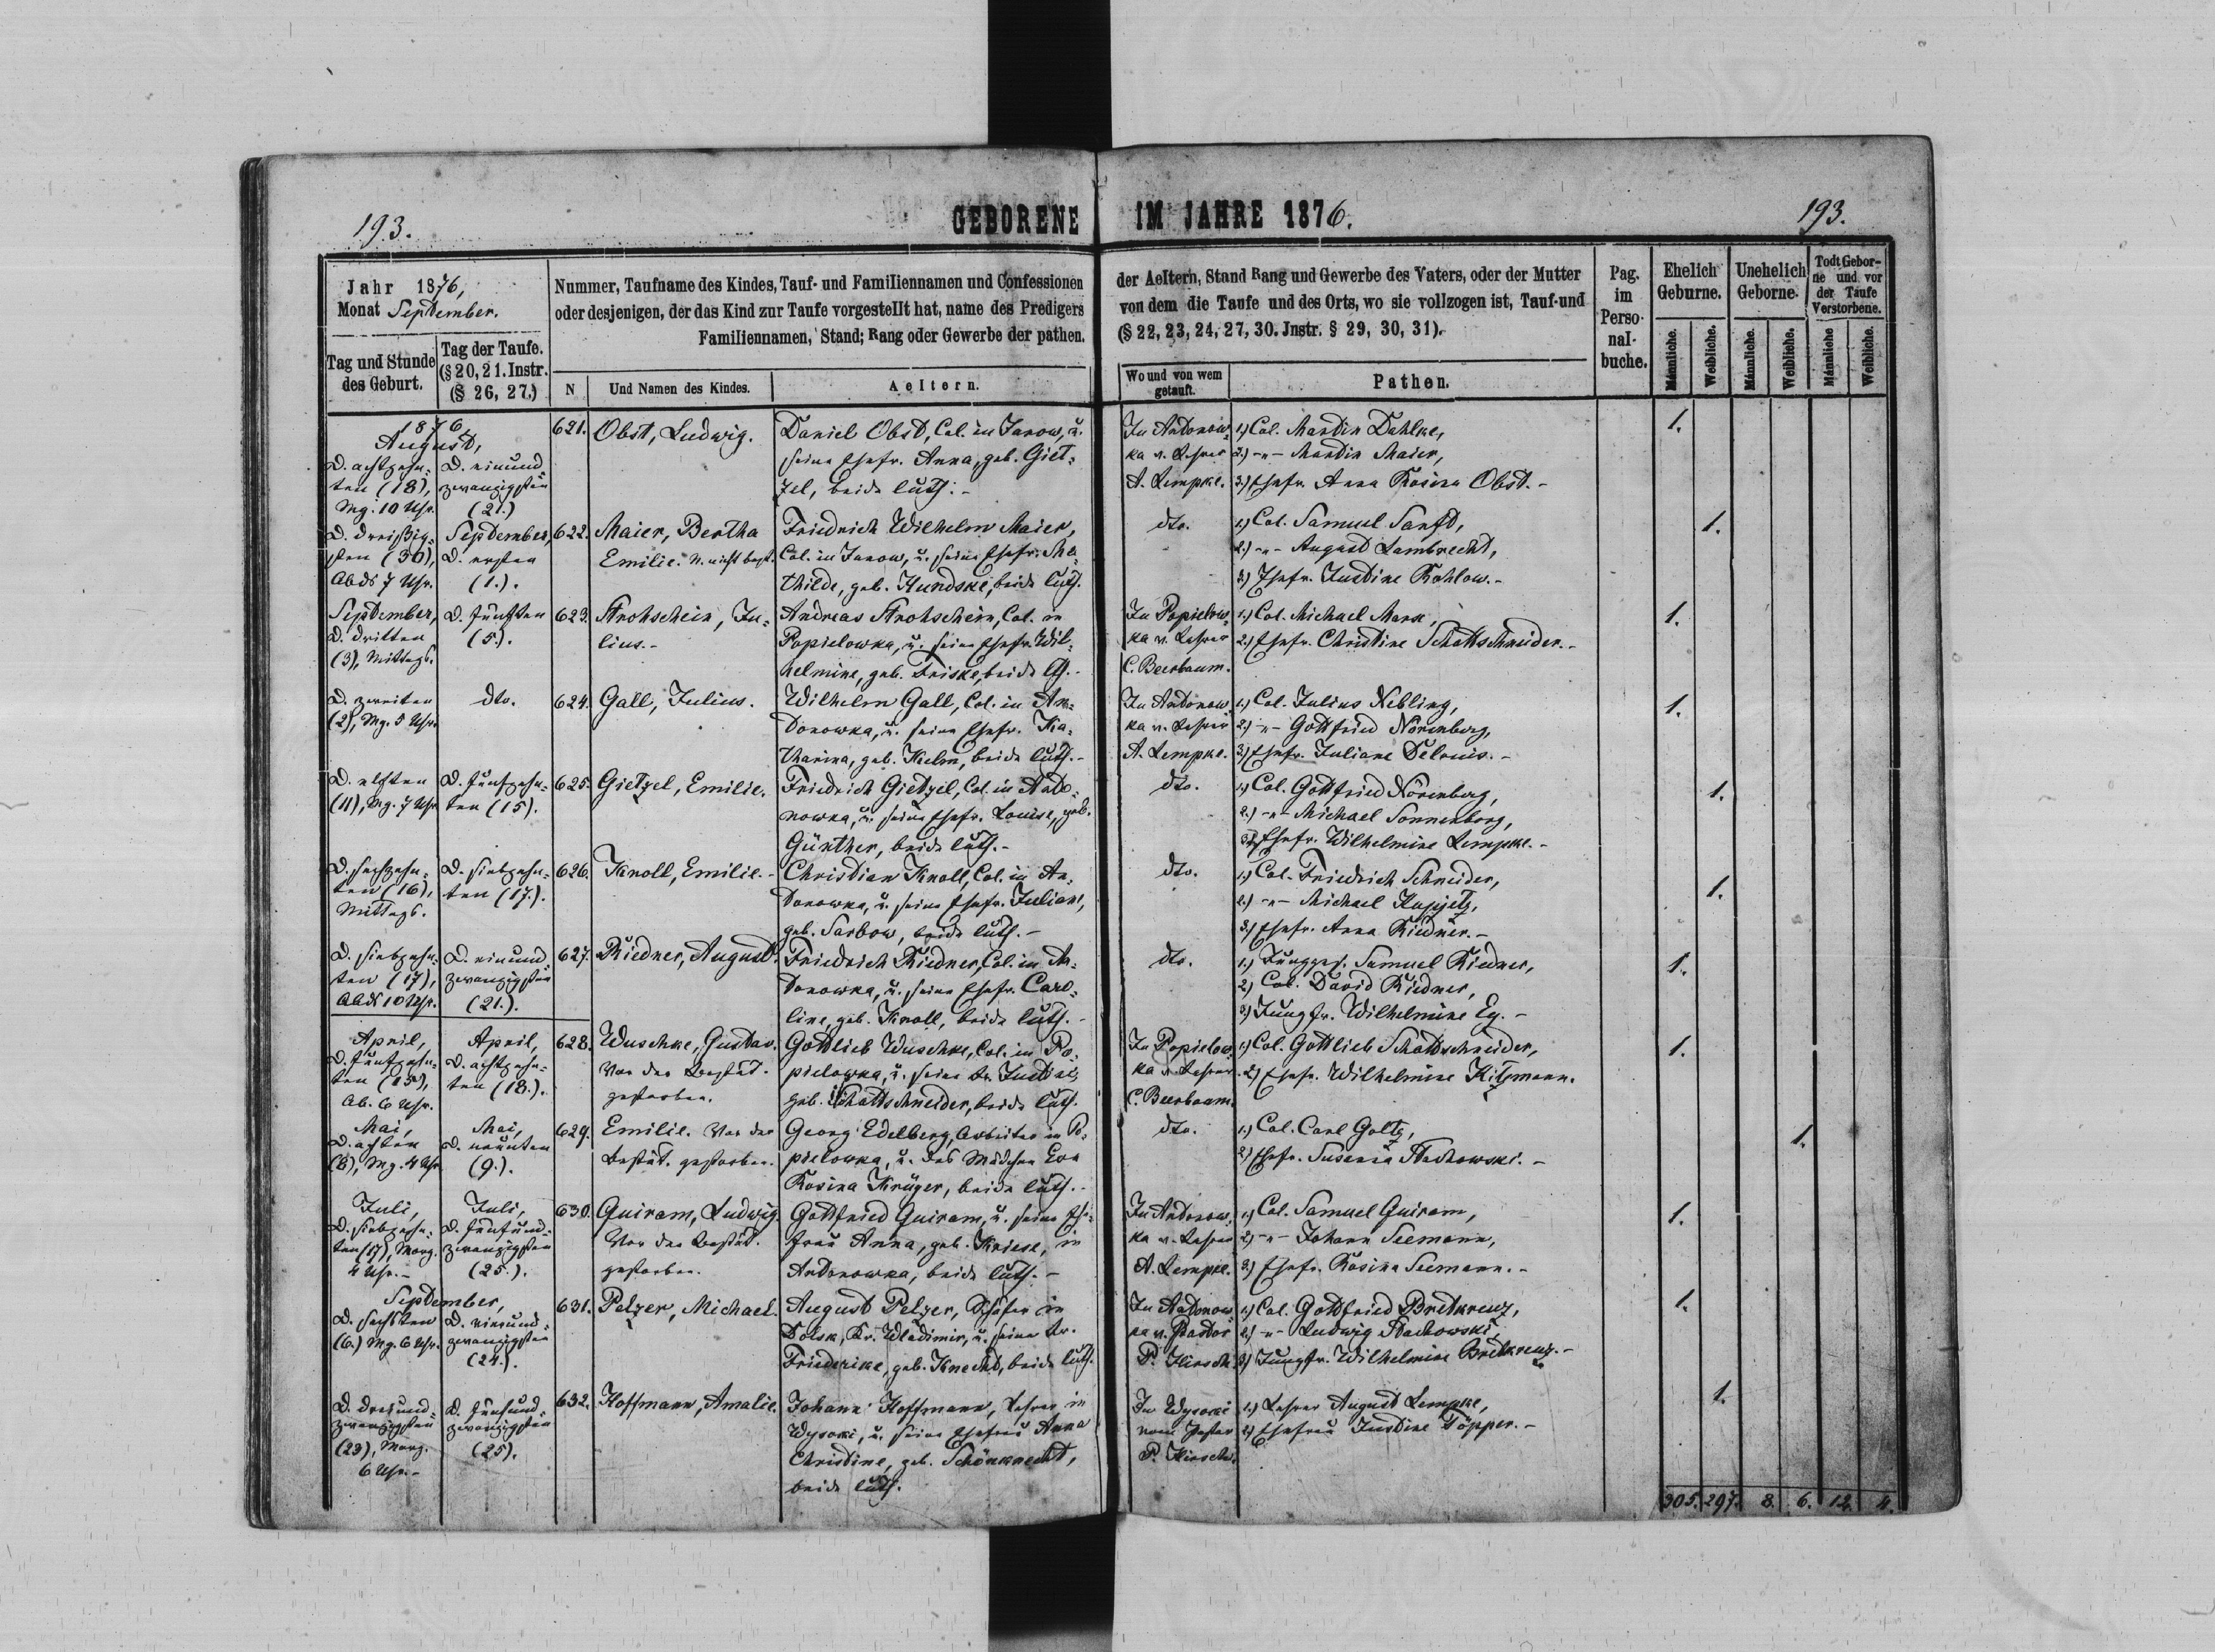 193.
GEBORENE IM JAHRE 1876.
193.
Jahr 1876,
Monat September.
Tag und Stunde
des Geburt.
Tag der Taufe.
(§ 20, 21. Instr.
(§ 26, 27.)
Nummer, Taufname des Kindes, Tauf- und Familiennamen und Confessionen
oder desjenigen, der das Kind zur Taufe vorgestellt hat, name des Predigers
Familiennamen, Stand; Rang oder Gewerbe der pathen.
N
Und Namen des Kindes.
Aeltern.
der Aeltern, Stand Rang und Gewerbe des Vaters, oder der Mutter
von dem die Taufe und des Orts, wo sie vollzogen ist, Tauf-und
(§ 22, 23, 24, 27, 30. Jnstr. § 29, 30, 31).
Wo und von wem
getauft.
Pathen.
Pag.
im
Perso-
nal-
buche.
Ehelich
Geburne.
Unehelich
Geborne.
Todt Gebor-
ne und vor
der Taufe
Verstorbene.
Männliche.
Weibliche.
Männliche.
Weibliche.
Männliche
Weibliche.
1876,
August,
D. achtzehn-
ten (18),
Mg. 10 Uhr.
D. einund-
zwanzigsten
(21.)
621.
Obst, Ludwig.
Daniel Obst, Col. in Janow, u.
seine Ehefr. Anna, geb. Giet-
zel, beide luth. -
In Antonow-
ka v. Lehrer
A. Lempke.
1.) Col. Martin Dahlke,
2.) -"- Martin Maier,
3.) Ehefr. Anna Rosina Obst. -
1.
D. dreißig-
sten (30),
Abds 7 Uhr.
September,
D. ersten
(1.).
622.
Maier, Bertha
Emilie. N. nicht best.
Friedrich Wilhelm Maier,
Col. in Janow, u. seine Ehefr. Ma-
thilde, geb. Hundske, beide luth.
dto.
1.) Col. Samuel Sanft,
2.) -"- August Lambrecht,
3.) Ehefr. Justine Rohlow. -
1.
September,
D. dritten
(3), Mittags.
D. fünften
(5.).
623.
Strohschein, Ju-
lius. -
Andreas Strohschein, Col. in
Popielowka, u. seine Ehefr. Wil-
helmine, geb. Friske, beide lth. -
In Popielow-
ka v. Lehrer
C. Beerbaum.
1.) Col. Michael Marx,
2.) Ehefr. Christine Schattschneider. -
1.
D. zweiten
(2), Mg. 5 Uhr.
dto.
624.
Gall, Julius.
Wilhelm Gall, Col. in An-
tonowka, u. seine Ehefr. Ka-
tharina, geb. Helm, beide luth. -
In Antonow-
ka v. Lehrer
A. Lempke.
1.) Col. Julius Nebling,
2.) -"- Gottfried Nörenberg,
3.) Ehefr. Juliane -
1.
D. elften
(11), Mg. 7 Uhr
D. fünfzehn-
ten (15).
625.
Gietzel, Emilie.
Friedrich Gietzel, Col. in Anto-
nowka, u. seine Ehefr. Louise, geb.
Günther, beide luth. -
dto.
1.) Col. Gottfried Nörenberg,
2.) -"- Michael Sonnenborg,
3.) Ehefr. Wilhelmine Lempke. -
1.
D. sechzehn-
ten (16),
Mittags.
D. siebzehn-
ten (17.).
626.
Knoll, Emilie. -
Christian Knoll, Col. in An-
tonowka, u. seine Ehefr. Juliane,
geb. Sarbow, beide luth. -
dto.
1.) Col. Friedrich Schneider,
2.) -"- Michael
3.) Ehefr. Anna Riedner. -
1.
D. siebzehn-
ten (17),
Abds 10 Uhr.
D. einund-
zwanzigsten
(21.).
627.
Riedner, August.
Friedrich Riedner, Col. in An-
tonowka, u. seine Ehefr. Caro-
line, geb. Knoll, beide luth. -
dto.
1.) Junggs. Samuel Riedner,
2.) Col. David Riedner,
3.) Jungfr. Wilhelmine Ey. -
1.
April,
D. fünfzehn-
ten (15),
Ab. 6 Uhr.
April,
D. achtzehn-
ten (18.).
628.
Wuschke, Gustav.
Vor der Bestät.
gestorben.
Gottlieb Wuschke, Col. in Po-
pielowka, u. seine Fr. Justine,
geb. Schattschneider, beide luth.
In Popielow-
ka v. Lehrer
C. Beerbaum.
1.) Col. Gottlieb Schattschneider,
2.) Ehefr. Wilhelmine Kitzmann.
1.
Mai,
D. achten
(8), Mg. 4 Uhr
Mai,
D. neunten
(9.).
629.
Emilie. Vor der
Bestät. gestorben.
Georg Edelberg, Arbeiter in Po-
pielowka, u. das Mädchen Eva
Rosina Krüger, beide luth. -
dto.
1.) Col. Carl Goltz,
2.) Ehefr. Susanna Stachowski. -
1.
Juli,
D. siebzehn-
ten (17), Morg.
4 Uhr. -
Juli,
D. fünfund-
zwanzigsten
(25.).
630.
Quiram, Ludwig.
Vor der Bestät.
gestorben.
Gottfried Quiram, u. seine Ehe-
frau Anna, geb. Kriese, in
Antonowka, beide luth. -
In Antonow-
ka v. Lehrer
A. Lempke.
1.) Col. Samuel Quiram,
2.) -"- Johann Seemann,
3.) Ehefr. Rosina Seemann. -
1.
September,
D. sechsten
(6.) Mg. 6 Uhr.
D. vierund-
zwanzigsten
(24.).
631.
Pelzer, Michael.
August Pelzer, Schäfer in
Dolsk, Kr. Wladimir, u. seine Fr.
Friederike, geb. Knecht, beide luth.
In Antonow-
ka v. Pastor
P. Hirsch.
1.) Col. Gottfried Bretkreuz,
2.) -"- Ludwig Stachowski,
3.) Jungfr. Wilhelmine Bretkreuz. -
1.
D. dreiund-
zwanzigsten
(23), Morg.
6 Uhr. -
D. fünfund-
zwanzigsten
(25).
632.
Hoffmann, Amalie.
Johann Hoffmann, Lehrer in
Wysoki, u. seine Ehefrau Anna
Christine, geb. Schönknecht,
beide luth.
In Wysoki
vom Pastor
P. Hirsch.
1.) Lehrer August Lempke,
2.) Ehefrau Justine Töpper. -
1.
305. 297. 8. 6. 12. 4.